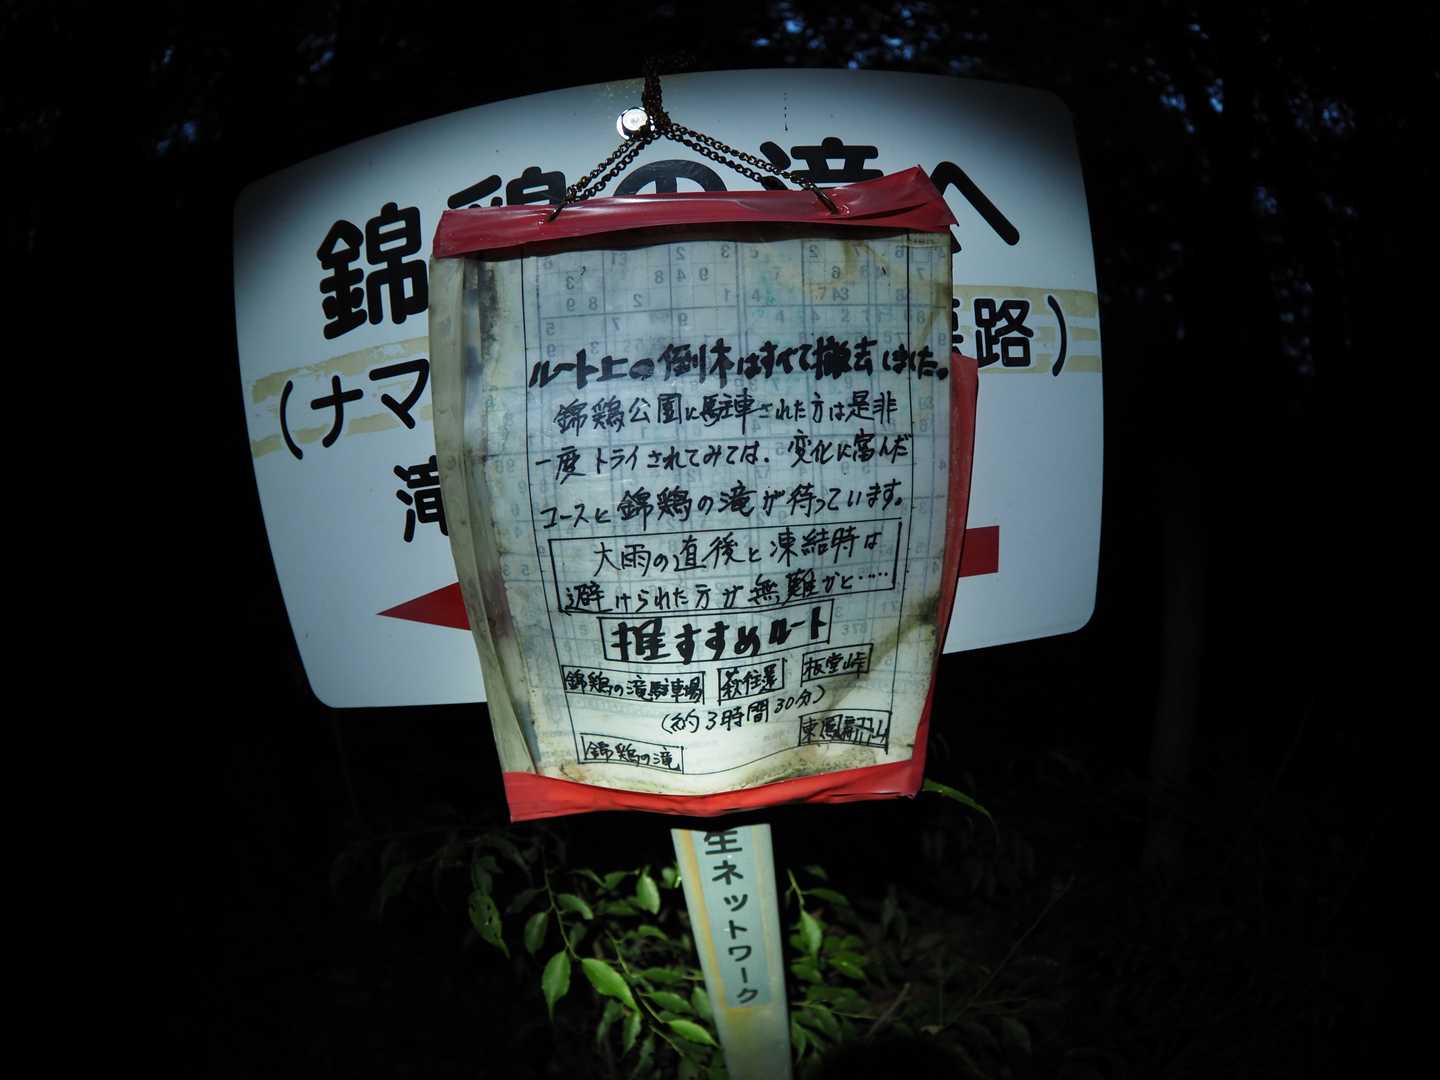 錦鶏の滝へ
(ナマ
路)
滝
ルート上の倒木はすべて撤去しました。
錦鶏公園に駐車された方は是非
一度トライされてみては、変化に富んだ
コースと錦鶏の滝が待っています。
大雨の直後と凍結時は
避けられた方が無難かと……
推すすめルート
錦鶏の滝駐車場 萩住還 板堂峠
(約3時間30分)
東鳳翩山
錦鶏の滝
生ネットワーク